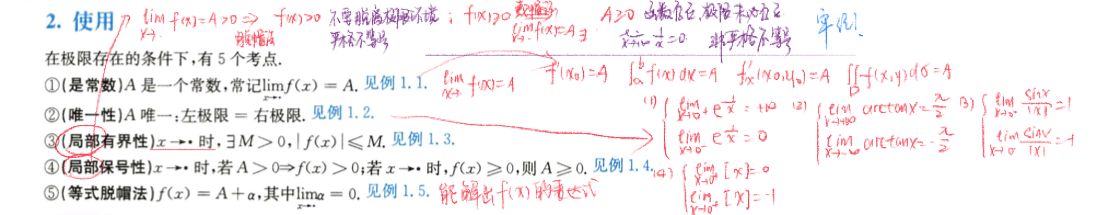 2. 使用 lim x→· f(x)=A>0 ⇒ f(x)>0 不要脱离极限环境; f(x)≥0 lim x→· f(x)=A ∃ A≥0 函数官正,极限未必官正 举例!
脱帽法 严格不等号 lim 1/x=0 非严格不等号
在极限存在的条件下,有 5 个考点.
①(是常数)A 是一个常数,常记lim x→· f(x)= A. 见例 1.1. lim x→· f(x)=A f'(x₀)=A ∫ₐᵇ f(x)dx=A f'ₓ(x₀,y₀)=A ∬_D f(x,y)dσ=A
②(唯一性)A 唯一:左极限 = 右极限. 见例 1.2. (1) { lim x→0⁺ e^(1/x)=+∞ (2) { lim x→+∞ arctanx=π/2 (3) { lim x→0⁺ sinx/|x|=1
lim x→0⁻ e^(1/x)=0 lim x→-∞ arctanx=-π/2 lim x→0⁻ sinx/|x|=-1
③(局部有界性)x→· 时,∃M>0,|f(x)|≤M. 见例 1.3.
④(局部保号性)x→· 时,若A>0⇒f(x)>0;若x→· 时,f(x)≥0,则 A≥0. 见例 1.4. (4) { lim x→0⁺ [x]=0
⑤(等式脱帽法)f(x)= A+α,其中lim x→· α=0. 见例 1.5. 能解出f(x)的表达式 lim x→0⁻ [x]=-1